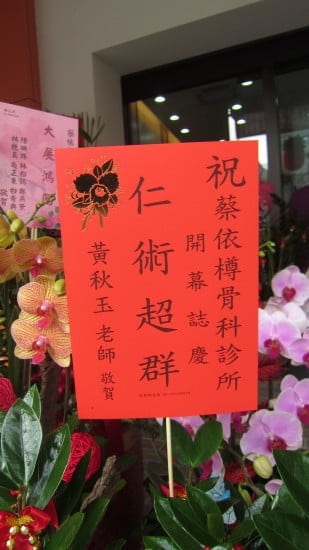 祝蔡依樽骨科診所
開幕誌慶
仁術超群
黃秋玉老師 敬賀
大展鴻